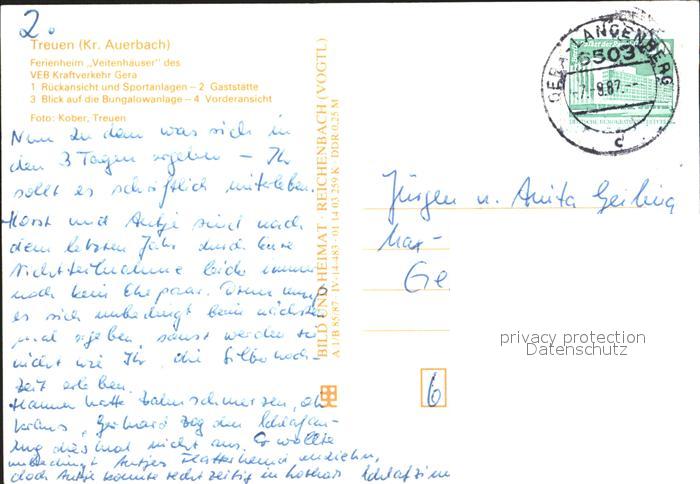 2.
Treuen (Kr. Auerbach)
Ferienheim „Veitenhäuser" des
VEB Kraftverkehr Gera
1 Rückansicht und Sportanlagen – 2 Gaststätte
3 Blick auf die Bungalowanlage – 4 Vorderansicht
Foto: Kober, Treuen
Nun zu dem was sich in
den 3 Tagen ergeben – Ihr
sollt es schriftlich miterleben.
Horst und Antje sind nach
dem letzten Jahr durch Eure
Nichtteilnahme leider immer
noch kein Ehepaar. Drum muß
es sich unbedingt beim nächsten
mal ergeben, sonst werden sie
nicht wie Ihr, die Silberhoch-
zeit erleben.
Hanner hatte Zahnschmerzen, oh
Gerhard zog den Schlafan-
zug diesmal nicht aus. Er wollte
unbedingt Antjes Flatterhemd anziehn,
doch Antje konnte rechtzeitig in Lothars Schlafzim
BILD UND HEIMAT · REICHENBACH (VOGTL)
A 1/B 85/87 IV-14-483 · 01 14 03 259 K DDR 0,25 M
GERA-LANGENBERG
6503
-7.-9.87.--
d
Jürgen u. Anita Geiling
Max-
Ge
6
privacy protection
Datenschutz